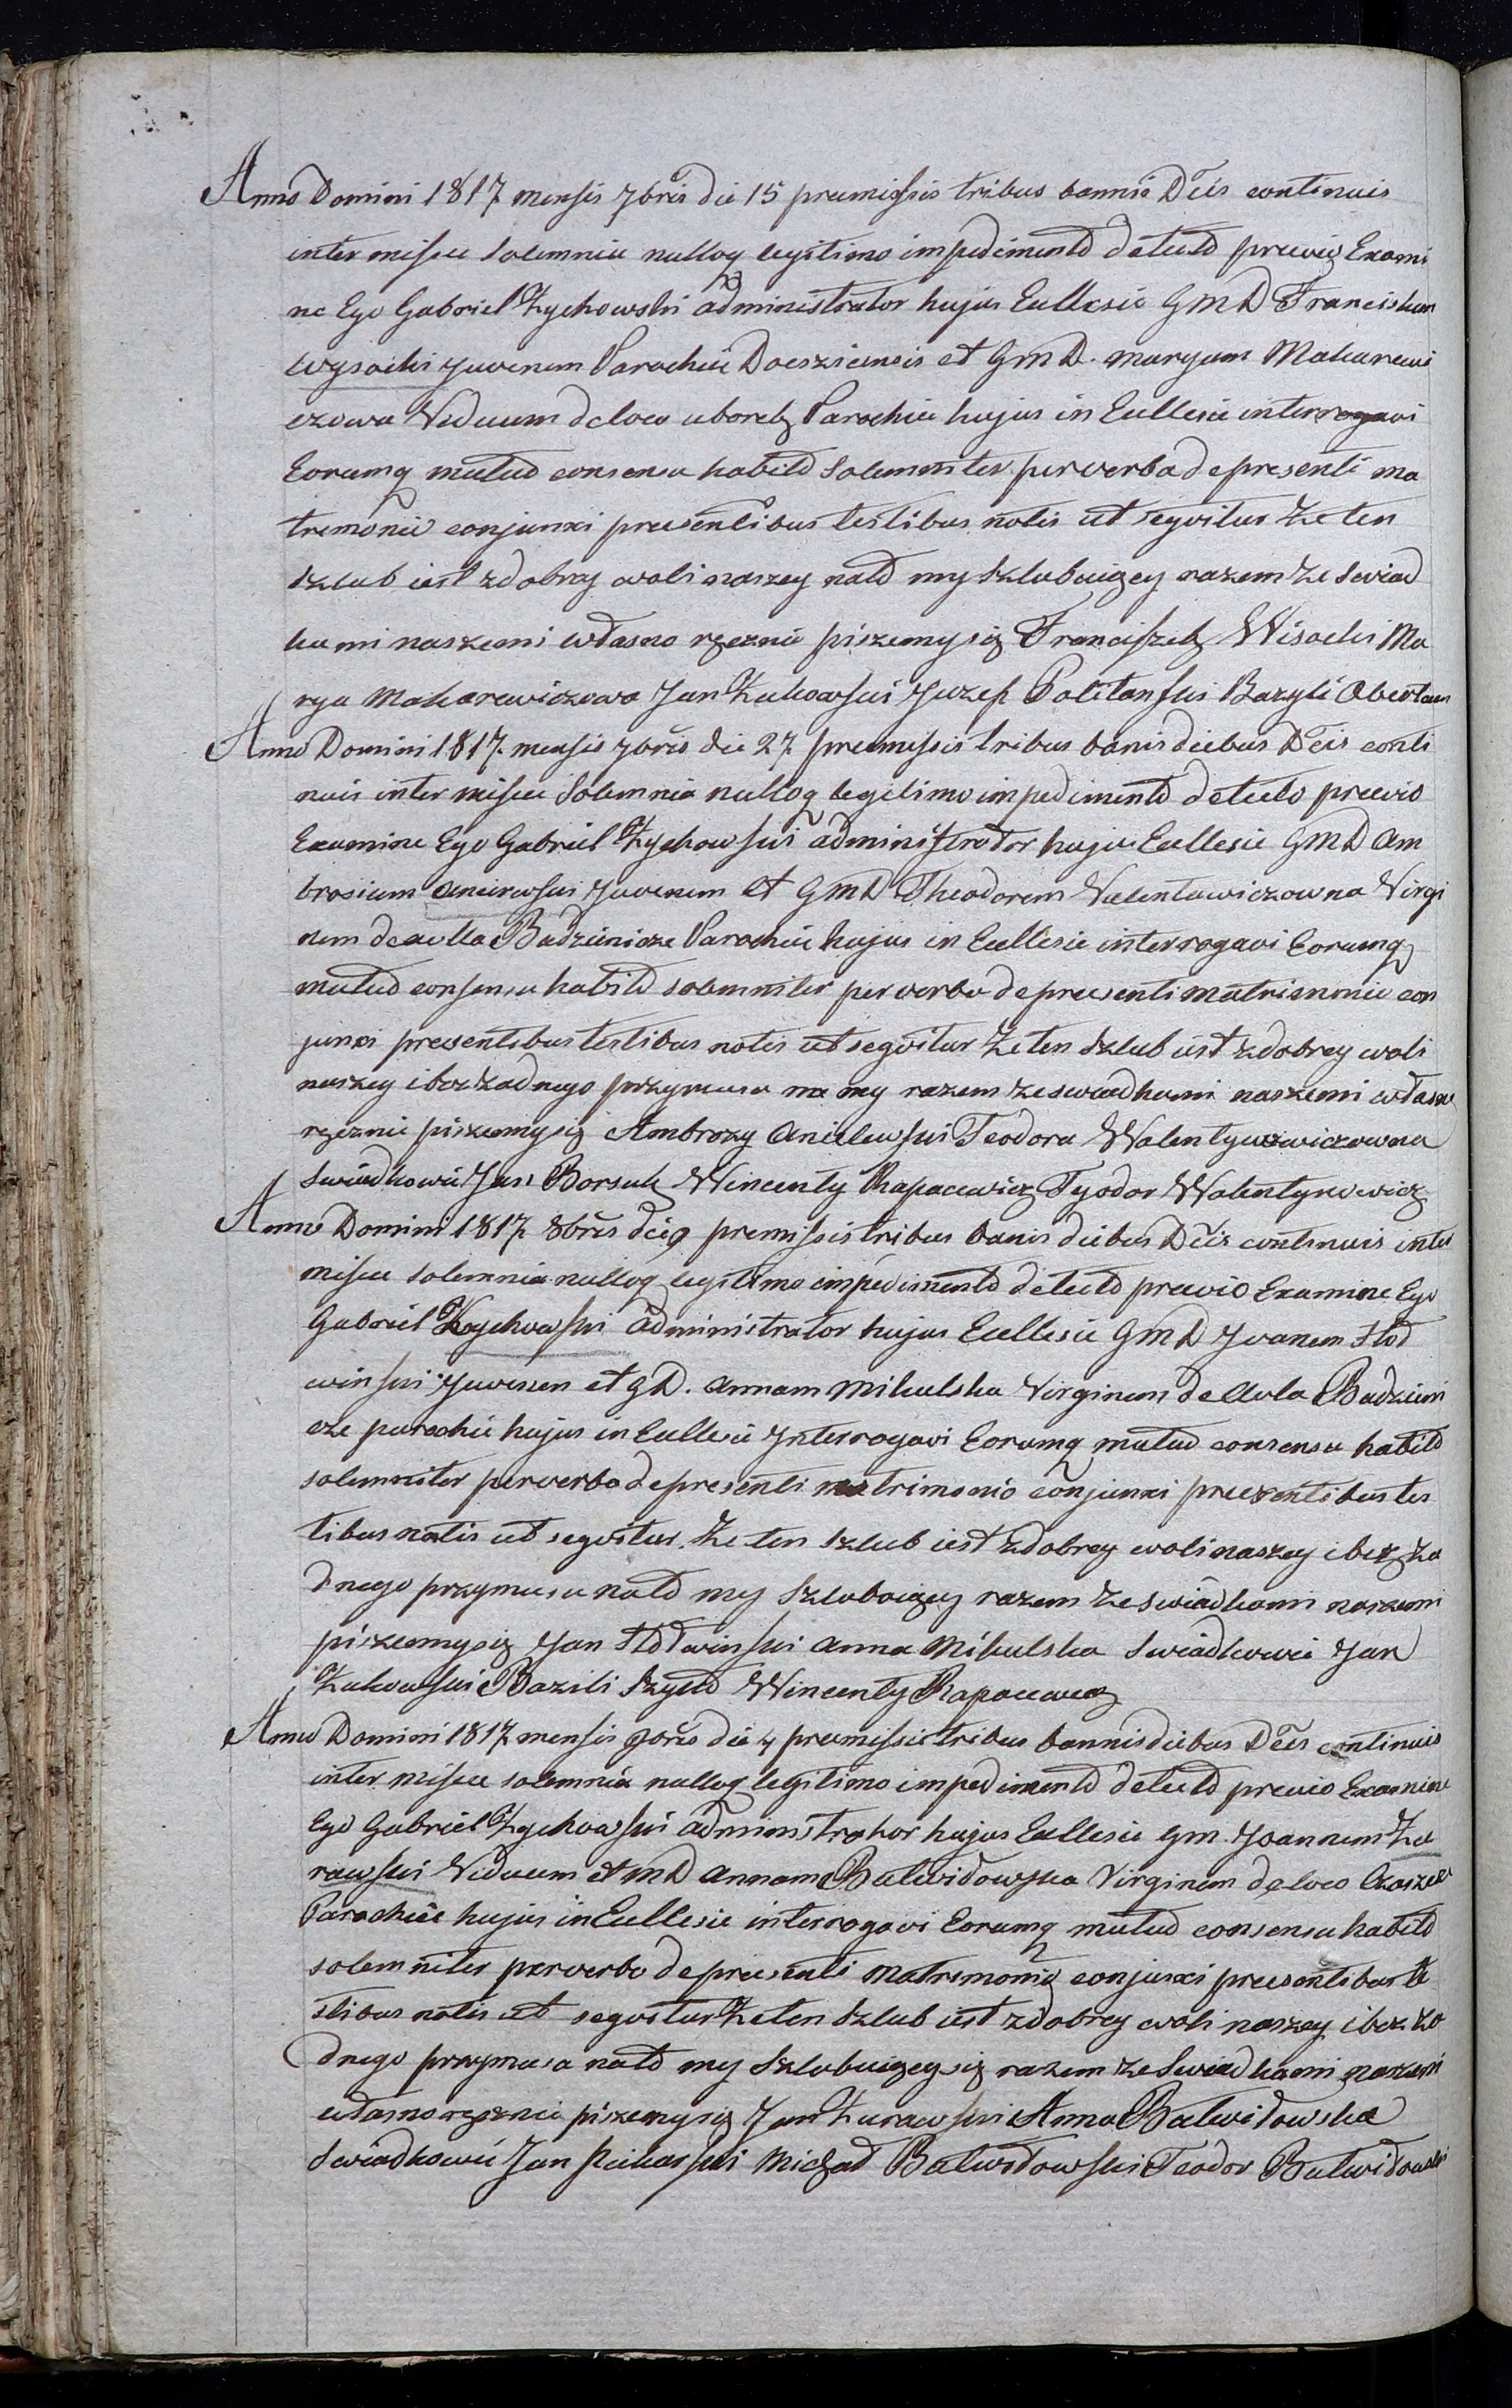 Anno Domini 1817 mensis 7bris die 15 premissis tribus bannis Dĉis continuis
inter missae solemnia nulloq legitimo impedimento detecto previo Exami
ne Ego Gabriel Zychowski administrator hujus Ecllesie GMD Franciskum
Wysocki Juvenem Parochie Dokszicensis et GmD. Maryam Makarewi
czowa Viduam de loco Parochie hujus in Ecllesie interrogavi
Eorumq mutuo consensu habito solemniter per verba de presenti ma
tremonio conjunxi presentibus testibus notis ut seqvitur że ten
szlub iest z dobrey woli naszey na to my szlubuiący razem ze swiad
kami naszemi własno ręcznie piszemy się Franciszek Wisocki Ma
rya Makarewiczowa Jan Żukowski Juzef Politanski Bazyli
Anno Domini 1817 mensis 7bris die 27 premissis tribus banis diebus Dĉis conti
nuis inter missae Solemnia nulloq legitimo impedimento detecto previo
Examine Ego Gabriel Zychowski administrator hujus Ecllesie GMD Am
brosium Aniewski Juvenem et GmD Theodorem Valentawiczowna Virgi
nem de aula Badzienicze Parochie hujus in Ecllesie interrogavi Eorumq
mutuo consensu habito solemniter per verba de presenti matrimonio con
junxi presentibus testibus notis ut seqvitur że ten szlub iest z dobrey woli
naszey i bez żadnego przymusu na my razem ze swiadkami naszemi własno
ręcznie piszemy się Ambrozy Anielewski Teodora Walentynowiczowna
Swiadkowie Jan Borsuk Wincenty Rapacewicz Tyodor Walentynowicz
Anno Domini 1817 8bris die 9 premissis tribus banis diebus Dĉis continuis inter
missae solemnia nulloq legitimo impedimento detecto previo Examine Ego
Gabriel Zychowski administrator hujus Ecllesie GMD Joanem Hod
winski Juvenem et gD. Annam Mikulska Virginem de Aula Badzieni
cze parochie hujus in Ecllesie Interrogavi Eorumq mutuo consensu habito
solemniter per verba de presenti matrimonio conjunxi presentibus tes
tibus notis ut seqvitur. że ten szlub iest z dobrey woli naszey i bez ża
dnego przymusu na to my szlubuiący razem ze swiadkami naszemi
piszemy się Jan Hołdwinski Anna Mikulska Swiadkowie Jan
Żukowski Bazili Szyło Wincenty Rapacewicz
Anno Domini 1817 mensis 9bris die 4 premissis tribus bannis diebus Dĉis continuis
inter missae solemnia nulloq legitimo impedimento detecto previo Examine
Ego Gabriel Zychowski administrator hujus Ecllesie Gm. Joannem Żu
rawski Viduum et mD Annam Butwidowska Virginem de loco
Parochie hujus in Ecllesie interrogavi Eorumq mutuo consensu habito
solemniter per verba de presenti matrimonio conjunxi presentibus te
stibus notis ut seqvitur że ten szlub iest z dobrey woli naszey i bez ża
dnego przymusu na to my szlubuiący się razem ze swiadkami naszemi
własno ręcznie piszemy się Jan Żurawski Anna Butwidowska
Swiadkowie Jan Michał Butwidowski Teodor Butwidowski